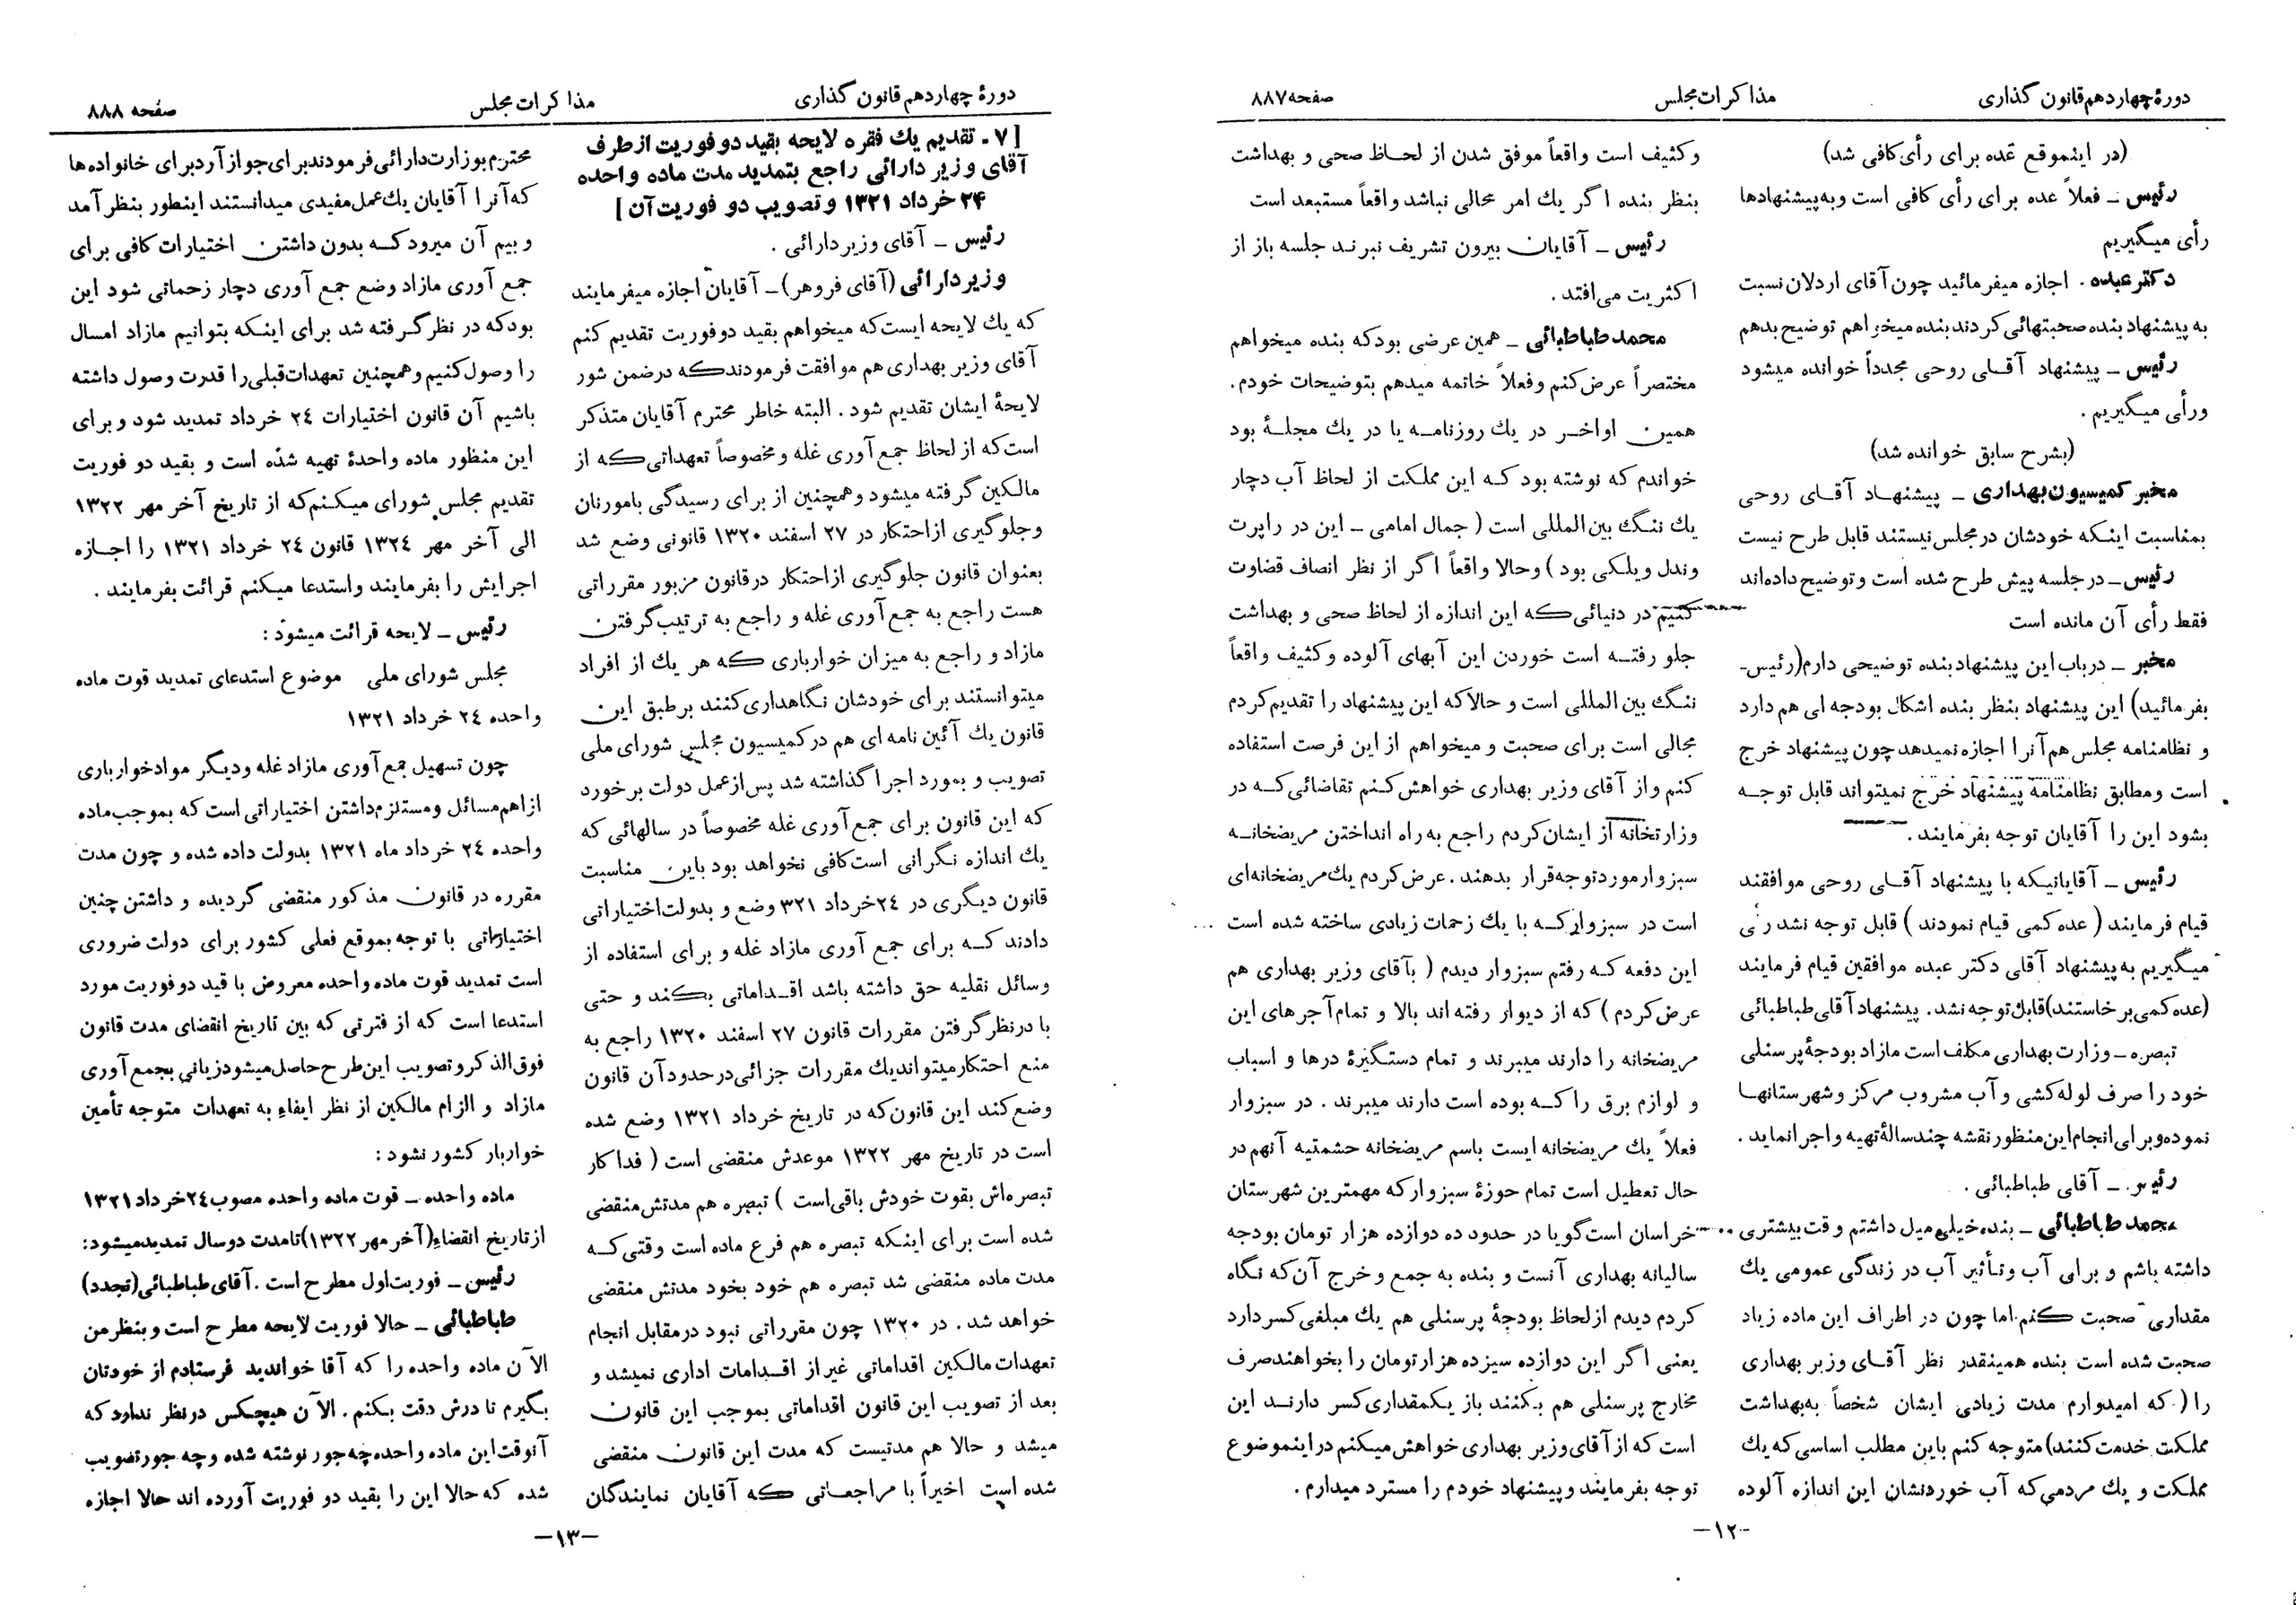 دورهٔ چهاردهم قانون گذاری
مذاکرات مجلس
صفحه ۸۸۷
(در اینموقع عده برای رأی کافی شد)
رئیس ـ فعلاً عده برای رأی کافی است و به پیشنهادها
رأی میگیریم
دکتر عبده . اجازه میفرمائید چون آقای اردلان نسبت
به پیشنهاد بنده صحبتهائی کردند بنده میخواهم توضیح بدهم
رئیس ـ پیشنهاد آقای روحی مجدداً خوانده میشود
ورأی میگیریم .
(بشرح سابق خوانده شد)
مخبر کمیسیون بهداری ـ پیشنهاد آقای روحی
بمناسبت اینکه خودشان در مجلس نیستند قابل طرح نیست
رئیس ـ در جلسه پیش طرح شده است و توضیح داده‌اند
فقط رأی آن مانده است
مخبر ـ در باب این پیشنهاد بنده توضیحی دارم(رئیس-
بفرمائید) این پیشنهاد بنظر بنده اشکال بودجه ای هم دارد
و نظامنامه مجلس هم آنرا اجازه نمیدهد چون پیشنهاد خرج
است ومطابق نظامنامه پیشنهاد خرج نمیتواند قابل توجه
بشود این را آقایان توجه بفرمایند .
رئیس ـ آقایانیکه با پیشنهاد آقای روحی موافقند
قیام فرمایند ( عده کمی قیام نمودند ) قابل توجه نشد رأی
میگیریم به پیشنهاد آقای دکتر عبده موافقین قیام فرمایند
(عده کمی برخاستند)قابل توجه نشد. پیشنهاد آقای طباطبائی
تبصره ـ وزارت بهداری مکلف است مازاد بودجهٔ پرسنلی
خود را صرف لوله کشی و آب مشروب مرکز و شهرستانها
نموده و برای انجام این منظور نقشه چند سالهٔ تهیه و اجرا نماید .
رئیس ـ آقای طباطبائی .
محمد طباطبائی ـ بنده خیلی میل داشتم وقت بیشتری
داشته باشم و برای آب و تأثیر آب در زندگی عمومی یك
مقداری صحبت کنم اما چون در اطراف این ماده زیاد
صحبت شده است بنده همینقدر نظر آقای وزیر بهداری
را ( که امیدوارم مدت زیادی ایشان شخصاً به بهداشت
مملکت خدمت کنند) متوجه کنم باین مطلب اساسی که یك
مملکت و یك مردمی که آب خوردنشان این اندازه آلوده
وکثیف است واقعاً موفق شدن از لحاظ صحی و بهداشت
بنظر بنده اگر یك امر محالی نباشد واقعاً مستبعد است
رئیس ـ آقایان بیرون تشریف نبرند جلسه باز از
اکثریت می‌افتد .
محمد طباطبائی ـ همین عرضی بود که بنده میخواهم
مختصراً عرض کنم وفعلاً خاتمه میدهم بتوضیحات خودم .
همین اواخر در یك روزنامه یا در یك مجلهٔ بود
خواندم که نوشته بود که این مملکت از لحاظ آب دچار
یك ننگ بین المللی است ( جمال امامی ـ این در راپرت
وندل ویلکی بود ) وحالا واقعاً اگر از نظر انصاف قضاوت
کنیم در دنیائی که این اندازه از لحاظ صحی و بهداشت
جلو رفته است خوردن این آبهای آلوده و کثیف واقعاً
ننگ بین المللی است و حالا که این پیشنهاد را تقدیم کردم
مجالی است برای صحبت و میخواهم از این فرصت استفاده
کنم و از آقای وزیر بهداری خواهش کنم تقاضائی که در
وزارتخانه از ایشان کردم راجع به راه انداختن مریضخانه
سبزوار مورد توجه قرار بدهند . عرض کردم یك مریضخانه‌ای
است در سبزوار که با یك زحمات زیادی ساخته شده است
این دفعه که رفتم سبزوار دیدم ( بآقای وزیر بهداری هم
عرض کردم ) که از دیوار رفته اند بالا و تمام آجرهای این
مریضخانه را دارند میبرند و تمام دستگیرهٔ درها و اسباب
و لوازم برق را که بوده است دارند میبرند . در سبزوار
فعلاً یك مریضخانه ایست باسم مریضخانه حشمتیه آنهم در
حال تعطیل است تمام حوزهٔ سبزوار که مهمترین شهرستان
خراسان است گویا در حدود ده دوازده هزار تومان بودجه
سالیانه بهداری آنست و بنده به جمع و خرج آن که نگاه
کردم دیدم از لحاظ بودجهٔ پرسنلی هم یك مبلغی کسر دارد
یعنی اگر این دوازده سیزده هزار تومان را بخواهند صرف
مخارج پرسنلی هم بکنند باز یکمقداری کسر دارند این
است که از آقای وزیر بهداری خواهش میکنم در اینموضوع
توجه بفرمایند و پیشنهاد خودم را مسترد میدارم .
-۱۲-
دورهٔ چهاردهم قانون گذاری
مذاکرات مجلس
صفحه ۸۸۸
[ ۷ - تقدیم یك فقره لایحه بقید دو فوریت از طرف
آقای وزیر دارائی راجع بتمدید مدت ماده واحده
۲۴ خرداد ۱۳۲۱ و تصویب دو فوریت آن ]
رئیس ـ آقای وزیر دارائی .
وزیر دارائی (آقای فروهر) ـ آقایان اجازه میفرمایند
که یك لایحه ایست که میخواهم بقید دو فوریت تقدیم کنم
آقای وزیر بهداری هم موافقت فرمودند که در ضمن شور
لایحهٔ ایشان تقدیم شود . البته خاطر محترم آقایان متذکر
است که از لحاظ جمع آوری غله و مخصوصاً تعهداتی که از
مالکین گرفته میشود و همچنین از برای رسیدگی بامور نان
وجلوگیری از احتکار در ۲۷ اسفند ۱۳۲۰ قانونی وضع شد
بعنوان قانون جلوگیری از احتکار در قانون مزبور مقرراتی
هست راجع به جمع آوری غله و راجع به ترتیب گرفتن
مازاد و راجع به میزان خوارباری که هر یك از افراد
میتوانستند برای خودشان نگاهداری کنند بر طبق این
قانون یك آئین نامه ای هم در کمیسیون مجلس شورای ملی
تصویب و بمورد اجرا گذاشته شد پس از عمل دولت برخورد
که این قانون برای جمع آوری غله مخصوصاً در سالهائی که
یك اندازه نگرانی است کافی نخواهد بود باین مناسبت
قانون دیگری در ۲٤ خرداد ۳۲۱ وضع و بدولت اختیاراتی
دادند که برای جمع آوری مازاد غله و برای استفاده از
وسائل نقلیه حق داشته باشد اقداماتی بکند و حتی
با در نظر گرفتن مقررات قانون ۲۷ اسفند ۱۳۲۰ راجع به
منع احتکار میتواند یك مقررات جزائی در حدود آن قانون
وضع کند این قانون که در تاریخ خرداد ۱۳۲۱ وضع شده
است در تاریخ مهر ۱۳۲۲ موعدش منقضی است ( فداکار
تبصره‌اش بقوت خودش باقی است ) تبصره هم مدتش منقضی
شده است برای اینکه تبصره هم فرع ماده است وقتی که
مدت ماده منقضی شد تبصره هم خود بخود مدتش منقضی
خواهد شد . در ۱۳۲۰ چون مقرراتی نبود در مقابل انجام
تعهدات مالکین اقداماتی غیر از اقدامات اداری نمیشد و
بعد از تصویب این قانون اقداماتی بموجب این قانون
میشد و حالا هم مدتیست که مدت این قانون منقضی
شده است اخیراً با مراجعاتی که آقایان نمایندگان
محترم بوزارت دارائی فرمودند برای جواز آرد برای خانواده‌ها
که آنرا آقایان یك عمل مفیدی میدانستند اینطور بنظر آمد
و بیم آن میرود که بدون داشتن اختیارات کافی برای
جمع آوری مازاد وضع جمع آوری دچار زحماتی شود این
بود که در نظر گرفته شد برای اینکه بتوانیم مازاد امسال
را وصول کنیم و همچنین تعهدات قبلی را قدرت وصول داشته
باشیم آن قانون اختیارات ۲٤ خرداد تمدید شود و برای
این منظور ماده واحدهٔ تهیه شده است و بقید دو فوریت
تقدیم مجلس شورای میکنم که از تاریخ آخر مهر ۱۳۲۲
الی آخر مهر ۱۳۲٤ قانون ۲٤ خرداد ۱۳۲۱ را اجازه
اجرایش را بفرمایند واستدعا میکنم قرائت بفرمایند .
رئیس ـ لایحه قرائت میشود :
مجلس شورای ملی موضوع استدعای تمدید قوت ماده
واحده ۲٤ خرداد ۱۳۲۱
چون تسهیل جمع آوری مازاد غله و دیگر مواد خوارباری
از اهم مسائل و مستلزم داشتن اختیاراتی است که بموجب ماده
واحده ۲٤ خرداد ماه ۱۳۲۱ بدولت داده شده و چون مدت
مقرره در قانون مذکور منقضی گردیده و داشتن چنین
اختیاراتی با توجه بموقع فعلی کشور برای دولت ضروری
است تمدید قوت ماده واحده معروض با قید دو فوریت مورد
استدعا است که از فترتی که بین تاریخ انقضای مدت قانون
فوق الذکر و تصویب این طرح حاصل میشود زیانی بجمع آوری
مازاد و الزام مالکین از نظر ایفاء به تعهدات متوجه تأمین
خواربار کشور نشود :
ماده واحده ـ قوت ماده واحده مصوب ۲٤ خرداد ۱۳۲۱
از تاریخ انقضاء(آخر مهر ۱۳۲۲)تا مدت دو سال تمدید میشود:
رئیس ـ فوریت اول مطرح است . آقای طباطبائی(تجدد)
طباطبائی ـ حالا فوریت لایحه مطرح است و بنظر من
الآن ماده واحده را که آقا خواندید فرستادم از خودتان
بگیرم تا درش دقت بکنم . الآن هیچکس در نظر ندارد که
آنوقت این ماده واحده چه جور نوشته شده و چه جور تصویب
شده که حالا این را بقید دو فوریت آورده اند حالا اجازه
-۱۳-